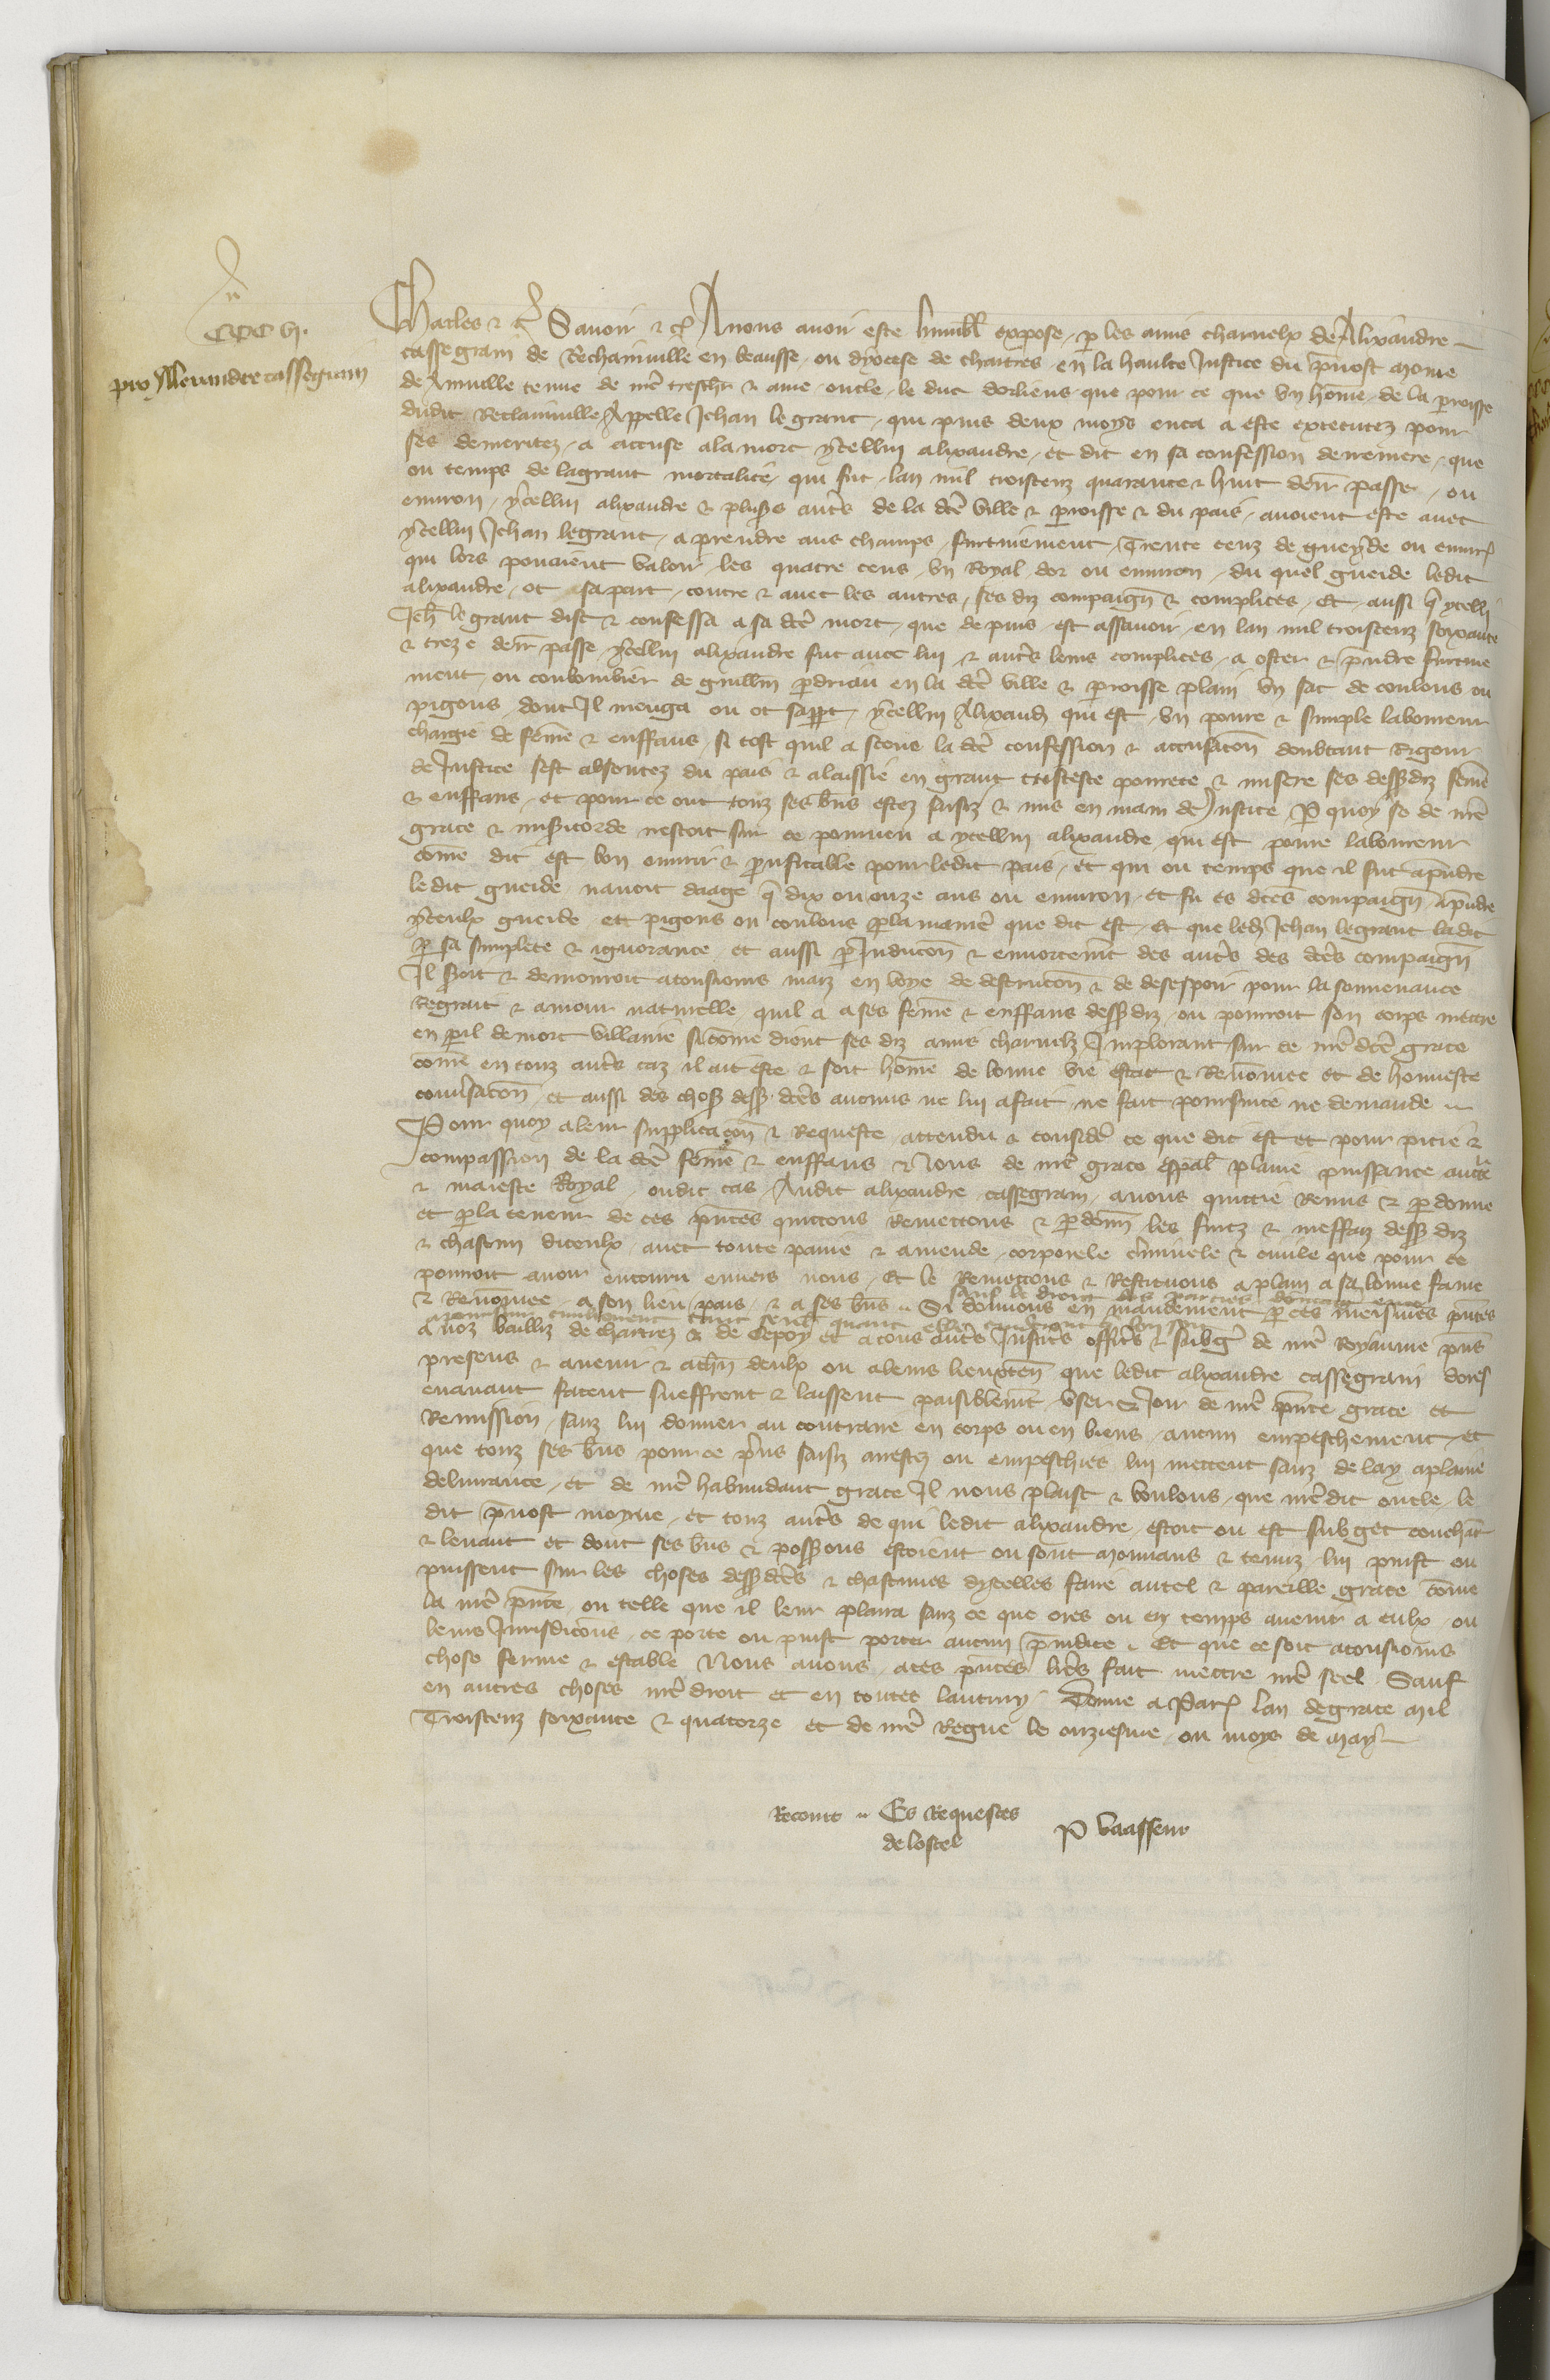 CCC VI.
pro Alexandre cassegrain
Charles &c Savoir &c A nous avoir este humbl expose par les amis charnelx de Alixandre
cassegrain de Rechainville en beausse ou dyocese de chartres en la haulte Justice du pvost moine
de Amville tenue de nre treschr & ame oncle le duc dorliens que pour ce que un home de la proisse
dudit Rechainville Appelle Jehan le grant qui puis deux moys enca a este executez pour
ses demeritez a accuse a la mort ycellui alixandre et dit en sa confession derreniere que
ou temps de la grant mortalite qui fut lan mil troiscenz quarante & huit derr passe ou
environ ycellui alixandre & plusrs autrs de la dce ville & proisse & du pais avoient este avec
ycellui Jehan legrant a prendre aus champs furtivement Trente cenz de gueyde ou envirn
qui lors povaient valoir les quatre cens un Royal dor ou environ du quel gueide ledit
alixandre ot sa part contre & avec les autres ses diz compaign & complices Et aussi q ycelli
Jeh le grant dist & confessa a sa dce mort que depuis est assavoir en lan mil troiscenz soixante
& treze derr passe ycellui alixandre fut avec lui & autrs leurs complices a oster & prndre furtive
ment ou coulombier de guillm perdriau en la dce ville & proisse plain un sac de coulons ou
pigons dont Il menga ou ot sa part ycellui Alixand qui est un povre & simple laboureur
chargie de feme & enffans si tost quil a sceue la dce confession & accusacon doubtant Rigour
de Justice sest absentez du pais & a laissie en grant tristesce povrete & misere ses dessdiz feme
& enffans et pour ce ont touz ses bns estez saisiz & mis en main de Justice Pr quoy se de nre
grace & misricorde nestoit sur ce pourveu a ycellui alixandre qui est povre laboureur
come dit est bon ouvrir & proufitable pour ledit pais et qui ou temps que il fut aprndre
le dit gueide navoit daage q dix ou onze ans ou environ et fu es dces compaign aprndre
yceulx gueide et pigons ou coulons p la manie que dit est Et que led Jehan legrant ladit
p sa simplece & ignorance et aussi p Inducon & enortemt des autrs des dces compaign
Il seroit & demourroit a tousiours maiz en voye de destrucon & de desespoir pour la souvenance
Regrait & amour naturelle quil a a ses feme & enffans dessdiz ou pourroit son corps mettre
en pril de mort villaine si come dient ses diz amis charnelz Implorant sur ce nre dce grace
come en touz autrs caz il ait este & soit home de bonne vie estat & Renomee et de honneste
conversacon et aussi des choss dess dces aucuns ne lui a fait ne fait poursuite ne demande
Pour quoy a leur supplicacon & Requeste attendu & consider ce que dit est et pour pitie &
compassion de la dce feme & enffans Nous de nre grace espal plaine puissance aucte
& maieste Royal oudit cas Audit alixandre cassegrain avons quictie Remis & pardonne
et p la teneur de ces prntes quictons Remettons & pardonn les faiz & meffaiz dess diz
& chascun diceulx avec toute paine & amende corporele criminele & civile que pour ce
pourroit avoir encouru envers nous Et le Remettons & Restituons a plain a sa bonne fame
& Renomee a son lieu pais & a ses bns Si donnons en mandement p ces mesmes prntes
sauf le droit des parties
a noz bailliz de chartrez & de Cepoy et a tous autrs Justics offics & subgs de nre Royaume prns
presens & avenir & a chn deulx ou a leurs lieuxten que ledit alixandre cassegrain dores
enavant facent sueffrent & laissent paisiblemt user & Joir de nre prnte grace et
Remission sanz lui donner au contraire en corps ou en biens aucun empeschement et
que touz ses bns pour ce prns saisiz arrestez ou empeschies lui mettent sanz delay a plaine
delivrance et de nre habundant grace Il nous plaist & voulons que nre dit oncle le
dit prvost moyne et touz autrs de qui ledit alixandre estoit ou est subget couchat
& levant et dont ses bns & possions estoient ou sont mouvans & tenuz lui puist ou
puissent sur les choses dessdces & chascunes dycelles faire autel & pareille grace come
la nre prnte ou telle que il leur plaira sanz ce que ores ou en temps avenir a eulx ou
leurs Jurisdicons ce porte ou puist porter aucun prudice Et que ce soit a tousiours
chose ferme & estable Nous avons a ces prntes lres fait mettre nre seel Sauf
en autres choses nre droit et en toutes lautruy Donne a Pars lan de grace mil
Troiscenz soixante & quatorze et de nre Regne le onziesme ou moys de may
Recouvr Es Requestes
de lostel
P Vaasseur